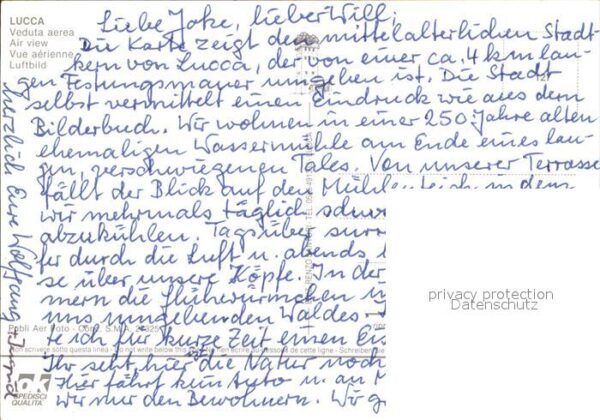 LUCCA
Veduta aerea
Air view
Vue aérienne
Luftbild
Liebe Joke, lieber Willi!
Die Karte zeigt den mittelalterlichen Stadt-
kern von Lucca, der von einer, ca. 4 km lan-
gen Festungsmauer umgeben ist. Die Stadt
selbst vermittelt einen Eindruck wie aus dem
Bilderbuch. Wir wohnen in einer 250 Jahre alten
ehemaligen Wassermühle am Ende eines lau-
gen, verschwiegenen Tales. Von unserer Terrasse
fällt der Blick auf den Mühlenteich, in dem
wir mehrmals täglich schw
abzukühlen. Tagsüber surr
fer durch die Luft u. abends
se über unsere Köpfe. In der
mern die Glühwürmchen
uns umgebenden Waldes.
te ich für kurze Zeit einen Eis
Ihr seht, hier die Natur noch
Hier fährt kein Auto u. an M
wir nur den Bewohnern. Wir g
herzlich Eure Wolfgang +
Publi Aer Foto - Conc. S.M.A.
Non scrivere sotto questa linea - Do not write below this
ok
SPEDISCI
QUALITÀ
privacy protection
Datenschutz